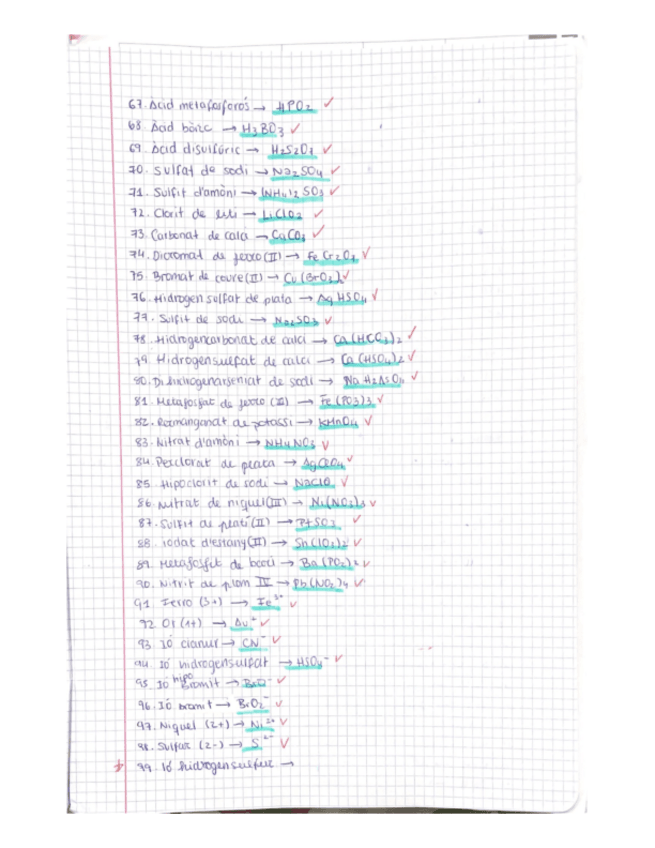 67. Àcid metafosforós → HPO₂ ✓
68. Àcid bòric → H₃BO₃ ✓
69. Àcid disulfúric → H₂S₂O₇ ✓
70. Sulfat de sodi → Na₂SO₄ ✓
71. Sulfit d'amoni → (NH₄)₂SO₃ ✓
72. Clorit de liti → LiClO₂ ✓
73. Carbonat de calci → CaCO₃ ✓
74. Dicromat de ferro (II) → FeCr₂O₇ ✓
75. Bromat de coure (II) → Cu(BrO₃)₂ ✓
76. Hidrogensulfat de plata → AgHSO₄ ✓
77. Sulfit de sodi → Na₂SO₃ ✓
78. Hidrogencarbonat de calci → Ca(HCO₃)₂ ✓
79. Hidrogensulfat de calci → Ca(HSO₄)₂ ✓
80. Dihidrogenarseniat de sodi → NaH₂AsO₄ ✓
81. Metafosfat de ferro (III) → Fe(PO₃)₃ ✓
82. Permanganat de potassi → KMnO₄ ✓
83. Nitrat d'amoni → NH₄NO₃ ✓
84. Perclorat de plata → AgClO₄ ✓
85. Hipoclorit de sodi → NaClO ✓
86. Nitrat de níquel (III) → Ni(NO₃)₃ ✓
87. Sulfit de platí (II) → PtSO₃ ✓
88. iodat d'estany (II) → Sn(IO₃)₂ ✓
89. Metafosfit de bari → Ba(PO₂)₂ ✓
90. Nitrit de plom IV → Pb(NO₂)₄ ✓
91. Ferro (3+) → Fe³⁺ ✓
92. Or (1+) → Au⁺ ✓
93. Ió cianur → CN⁻ ✓
94. Ió hidrogensulfat → HSO₄⁻ ✓
95. Ió hipobromit → BrO⁻ ✓
96. Ió bromit → BrO₂⁻ ✓
97. Níquel (2+) → Ni²⁺ ✓
98. Sulfur (2-) → S²⁻ ✓
99. Ió hidrogensulfur →